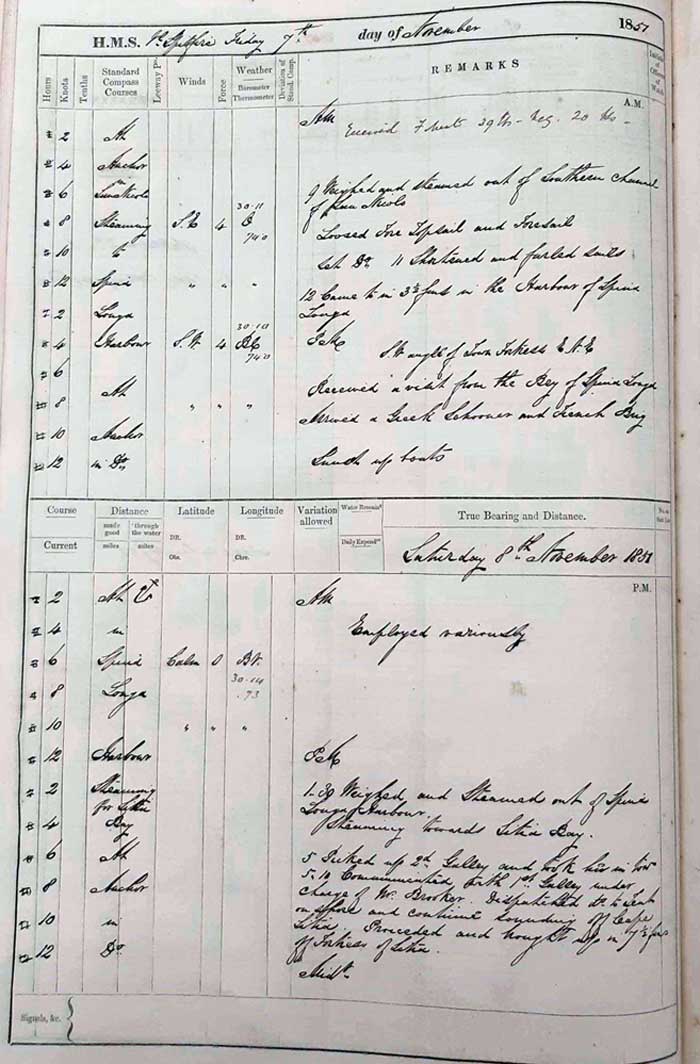 H.M.S. Spitfire Friday 7th day of November 1851
Hours Knots Tenths Standard Compass Courses Leeway Winds Force Weather Barometer Thermometer Deviation of Stand. Comp. REMARKS
A.M.
AM
2 At Received 7 39 lbs - Veg. 20 lbs -
4 Anchor
6 9 Weighed and steamed out of Southern Channel
30.11 of
8 Steaming S.E 4 Loosed Fore Topsail and Foresail
740
10 to Set Do 11 Shortened and furled sails
12 Spina " " " 12 Came to in 3½ fms in the Harbour of Spina
2 Longa Longa
30.10
4 Harbour S.W. 4 BC PM
740 S.W angle of Town Fortress E.N.E
6 Received a visit from the Bey of Spina Longa
8 At " " " Arrived a Greek Schooner and French Brig
10 Anchor
12 in Do up boats
Course Distance Latitude Longitude Variation allowed True Bearing and Distance.
made good through the water DR. DR. Water Remain
Current miles miles Obs. Chro. Daily Expend
Saturday 8th November 1851
P.M.
2 At AM
4 in Employed variously
6 Spina Calm 0 BV.
30.14
8 Longa .73
10 " " "
12 Harbour PM
2 Steaming 1.30 Weighed and Steamed out of Spina
for Sitia Longa Harbour.
4 Bay Steaming towards Sitia Bay.
6 At 5 Picked up 2d Galley and took her in tow
5.10 Communicated with 1st Galley under
8 Anchor charge of Mr. Brooker. Dispatched Do to Tent
on shore and continue sounding off Cape
10 in Sitia. Proceeded and brought up in 7½ fms
12 Do off Fortress of Sitia.
Midt
Signals, &c.